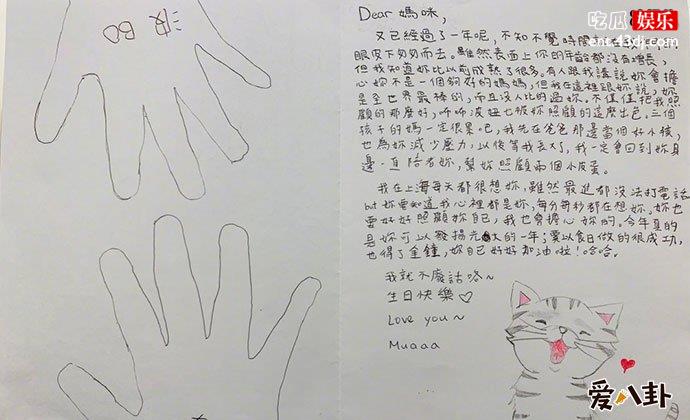 Dear 媽咪,
又已經過了一年呢,不知不覺時間
眼皮下匆匆而去。雖然表面上你的年齡都沒有增長,
但我知道妳比以前成熟了很多。有人跟我講說妳會擔
心妳不是一個夠好的媽媽,但我在這裡跟妳說,妳
是全世界最棒的,而且沒人比的過妳。不僅僅把我照
顧的那麼好,咘咘波妞也被妳照顧的這麼出色,三個
孩子的媽一定很累吧,我先在爸爸那邊當個好小孩,
也為妳減少壓力,以後等我長大了,我一定會回到妳身
邊一直陪者妳,幫妳照顧兩個小皮蛋。
我在上海每天都很想妳,雖然最近都沒法打電話
but 妳要知道我心裡都是妳,每分每秒都在想妳。妳也
要好好照顧妳自己,我也會擔心妳的。今年真的
是妳可以發揚光大的一年;愛以食日做的很成功,
也得了金鐘,妳自己好好加油啦!哈哈。
我就不廢話咯~
生日快樂♡
Love you~
Muaaa
BO
吃瓜娱乐
ent43dj.com
爱八卦